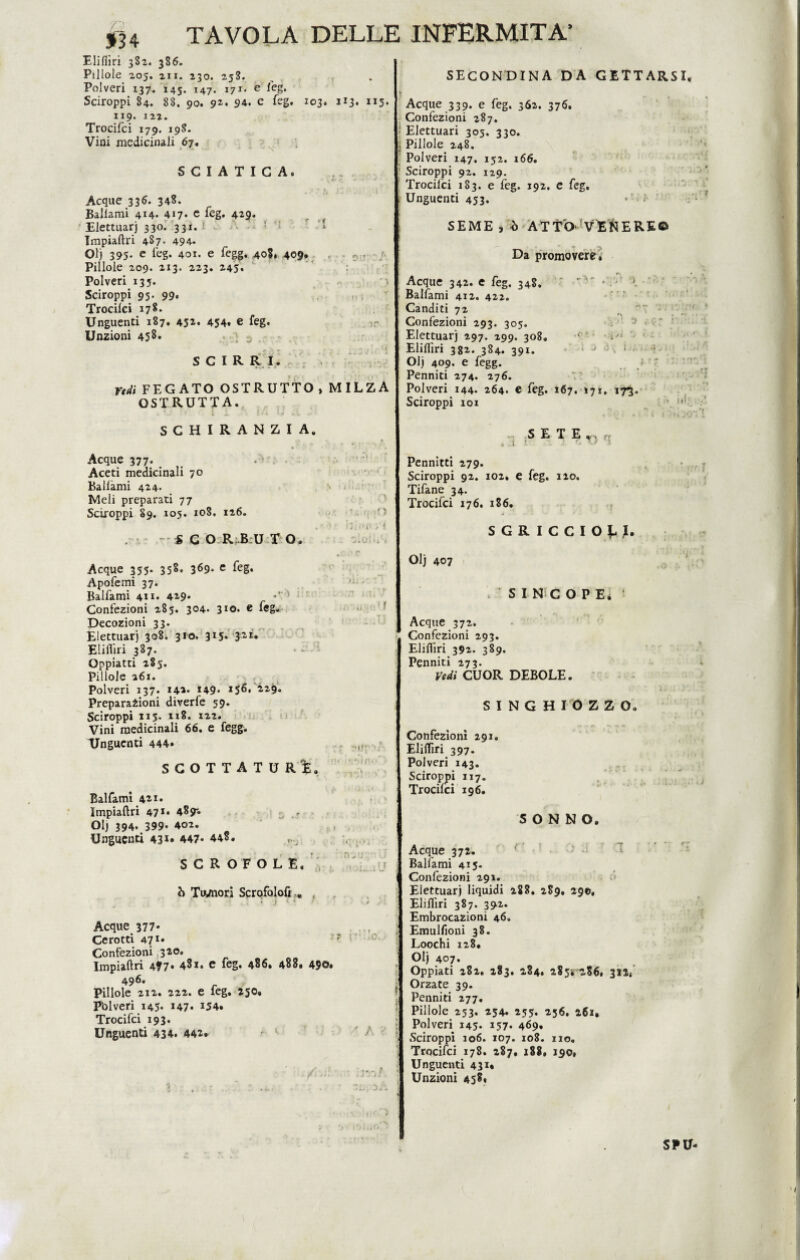 534 TAVOLA DELLE INFERMITA'
Elissiri 382. 386.
Pillole 205. 211. 230. 258.
Polveri 137. 145. 147. 171. e seg.
Sciroppi 84. 88. 90. 92. 94. e seg. 103. 113. 115.
119. 122.
Trocisci 179. 198.
Vini medicinali 67.
SCIATICA.
Acque 336. 348.
Balsami 414. 417. e seg. 429.
Elettuarj 330. 331.
Impiastri 487. 494.
Olj 395. e seg. 401. e segg. 408. 409.
Pillole 209. 213. 223. 245.
Polveri 135.
Sciroppi 95. 99.
Trocisci 178.
Unguenti 187. 452. 454. e seg.
Unzioni 458.
SCIRRI.
Vedi FEGATO OSTRUTTO, MILZA
OSTRUTTA.
SCHIRANZIA.
Acque 377.
Aceti medicinali 70
Balsami 424.
Meli preparati 77
Sciroppi 89. 105. 108. 126.
SCORBUTO.
Acque 355. 358. 369. e seg.
Aposemi 37.
Balsami 411. 429.
Confezioni 285. 304. 310. e seg.
Decozioni 33.
Elettuarj 308. 310. 315. 321.
Elissiri 387.
Oppiatti 285.
Pillole 261.
Polveri 137. 142. 149. 156. 229.
Preparazioni diverse 59.
Sciroppi 115. 118. 122.
Vini medicinali 66. e segg.
Unguenti 444.
SCOTTATURE.
Balsami 421.
Impiastri 471. 489.
Olj 394. 399. 402.
Unguenti 431. 447. 448.
SCROFOLE,
ò Tumori Scrofolosi.
Acque 377.
Cerotti 471.
Confezioni 320.
Impiastri 477. 481. e seg. 486. 488. 490.
496.
Pillole 212. 222. e seg. 250.
Polveri 145. 147. 154.
Trocisci 193.
Unguenti 434. 442.
SECONDINA DA GETTARSI.
Acque 339. e seg. 362. 376.
Confezioni 287.
Elettuari 305. 330.
Pillole 248.
Polveri 147. 152. 166.
Sciroppi 92. 129.
Trocisci 183. e seg. 192. e seg.
Unguenti 453.
SEME, ò ATTO VENEREO
Da promovere.
Acque 342. e seg. 348.
Balsami 412. 422.
Canditi 72
Confezioni 293. 305.
Elettuarj 297. 299. 308.
Elissiri 382. 384. 391.
Olj 409. e segg.
Penniti 274. 276.
Polveri 144. 264. e seg. 167. 171. 173.
Sciroppi 101
SETE.
Pennitti 279.
Sciroppi 92. 102. e seg. 120.
Tisane 34.
Trocisci 176. 186.
SGRICCIOLI.
Olj 407
SINCOPE.
Acque 372.
Confezioni 293.
Elissiri 392. 389.
Penniti 273.
Vedi CUOR DEBOLE.
SINGHIOZZO.
Confezioni 291.
Elissiri 397.
Polveri 143.
Sciroppi 117.
Trocisci 196.
SONNO.
Acque 372.
Balsami 415.
Confezioni 291.
Elettuarj liquidi 288. 289. 290.
Elissiri 387. 392.
Embrocazioni 46.
Emulsioni 38.
Loochi 128.
Olj 407.
Oppiati 282. 283. 284. 285. 286. 312.
Orzate 39.
Penniti 277.
Pillole 253. 254. 255. 256. 261.
Polveri 145. 157. 469.
Sciroppi 106. 107. 108. 110.
Trocisci 178. 287. 188. 190.
Unguenti 431.
Unzioni 458.
SPU-